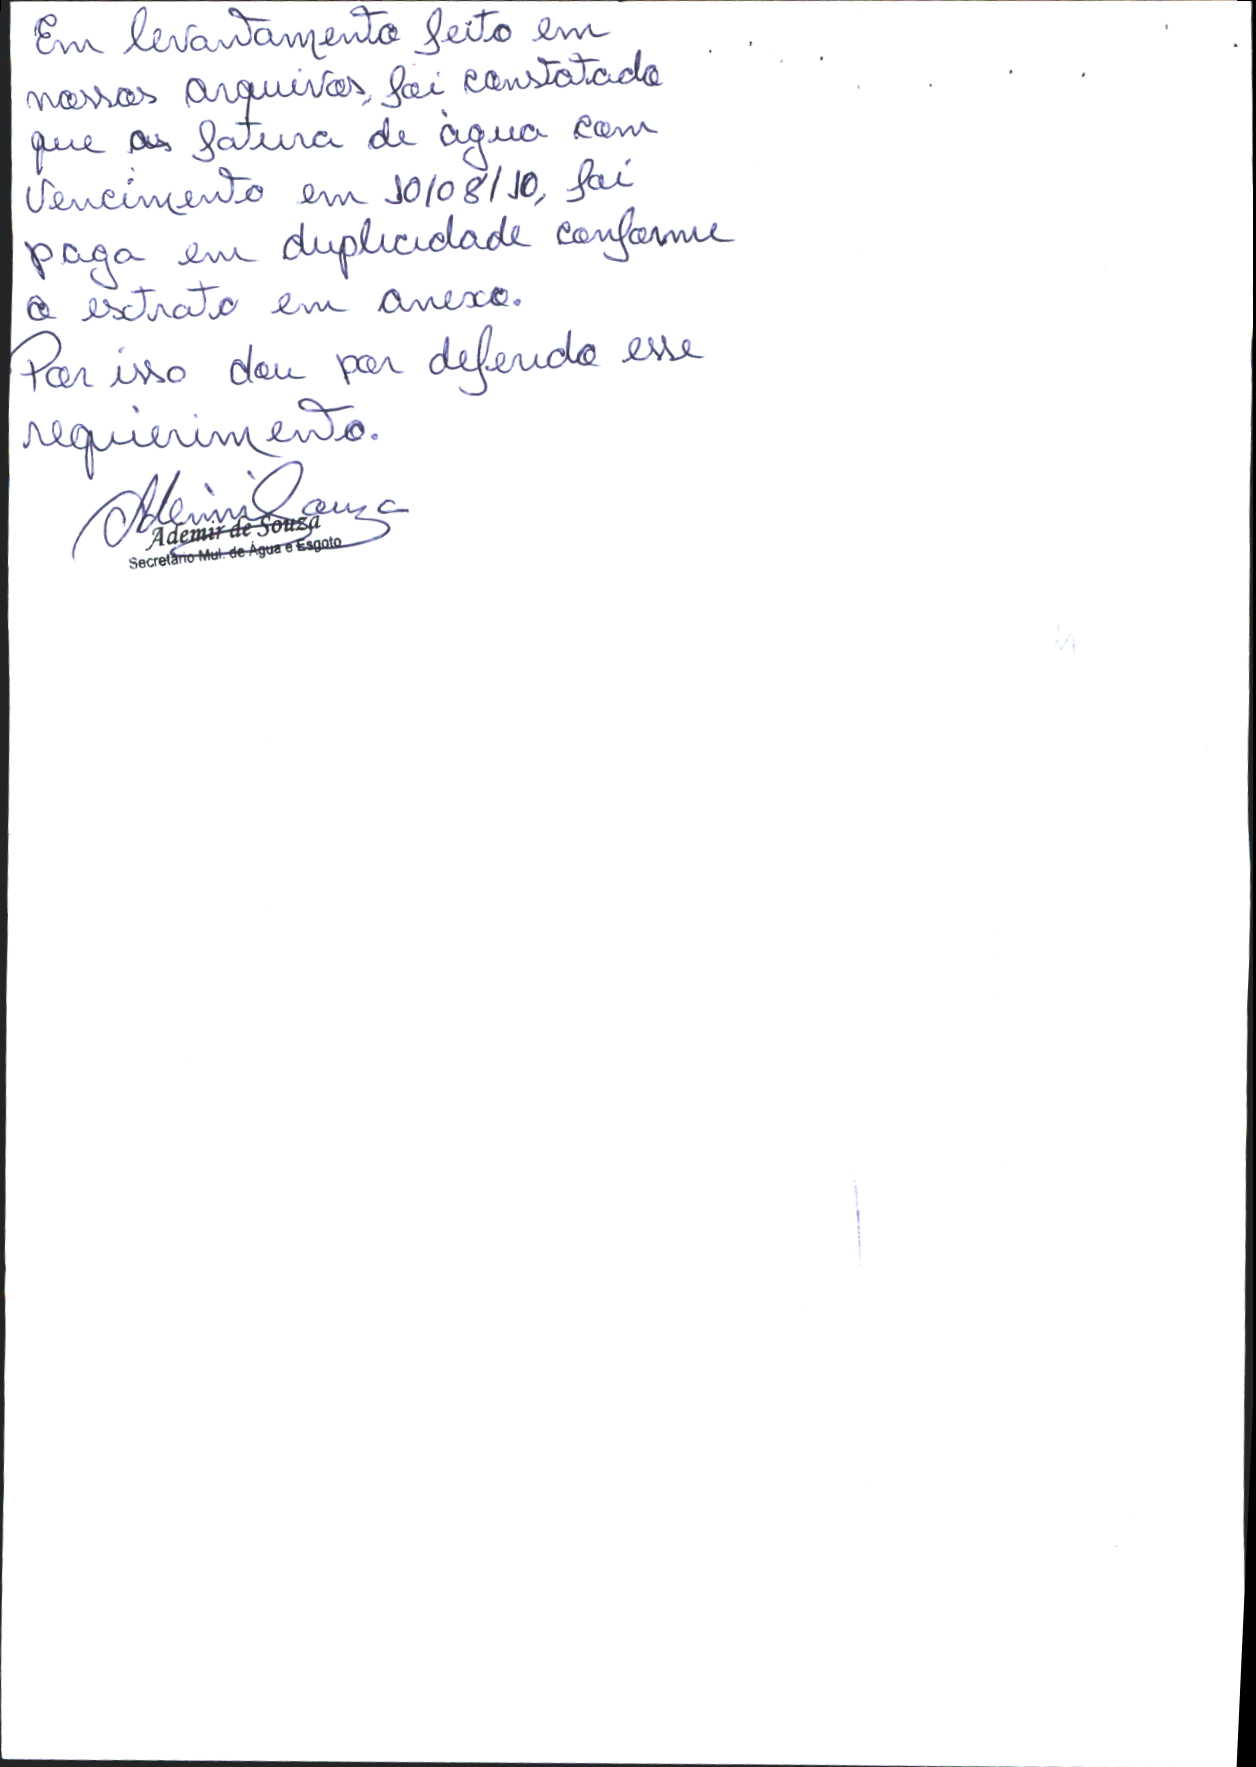 Em levantamento feito em
nossos arquivos, foi constatado
que as fatura de água com
vencimento em 10/08/10, foi
paga em duplicidade conforme
o extrato em anexo.
Por isso dou por deferido esse
requierimento.
Ademir Souza
Ademir de Souza
Secretário Mul. de Água e Esgoto